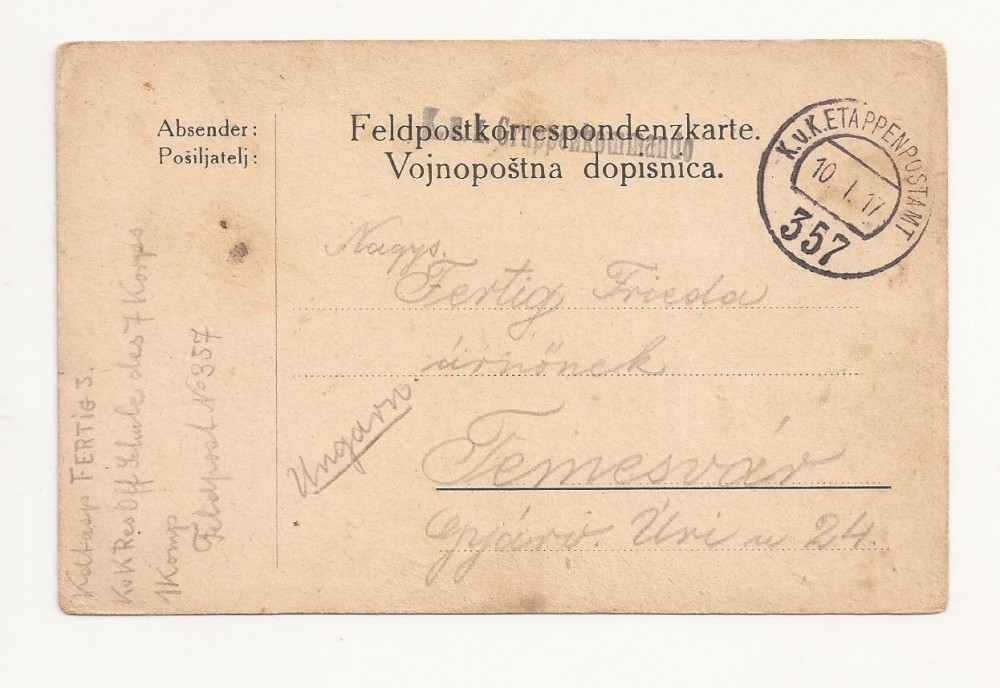 Absender:
Pošiljatelj:
Feldpostkorrespondenzkarte.
Vojnopoštna dopisnica.
K. u. k. Gruppenkommando
K.u.K. ETAPPENPOSTAMT
10. I. 17
357
Nagys.
Fertig Frieda
úrnőnek
Temesvár
Gyárv. Úri u 24.
Ungarn
Kdtasp FERTIG J.
KuK Res Off Schule des 7 Korps
1 Komp
Feldpost No 357